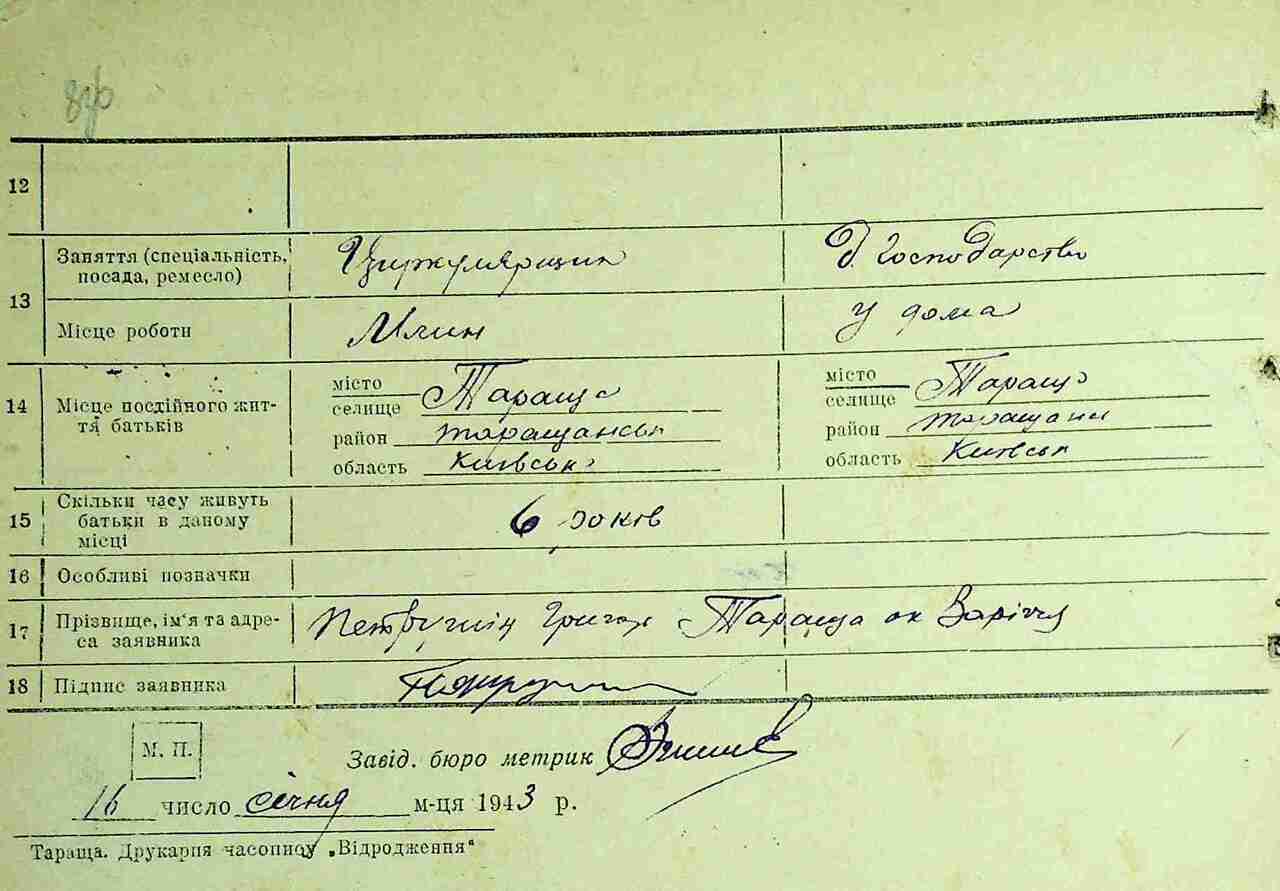 12
13 Заняття (спеціальність, Циркулярщик Д. Господарство
посада, ремесло)
Місце роботи Млин у дома
14 Місце постійного жит-
тя батьків
місто Тараща місто Тараща
селище селище
район Таращанськ район Таращанс
область Київськ область Київськ
15 Скільки часу живуть
батьки в даному 6 років
місці
16 Особливі позначки
17 Прізвище, ім'я та адре- Григор Тараща ок Заріччя
са заявника
18 Підпис заявника
М. П.
Завід. бюро метрик
16 число січня м-ця 1943 р.
Тараща. Друкарня часопису „Відродження"